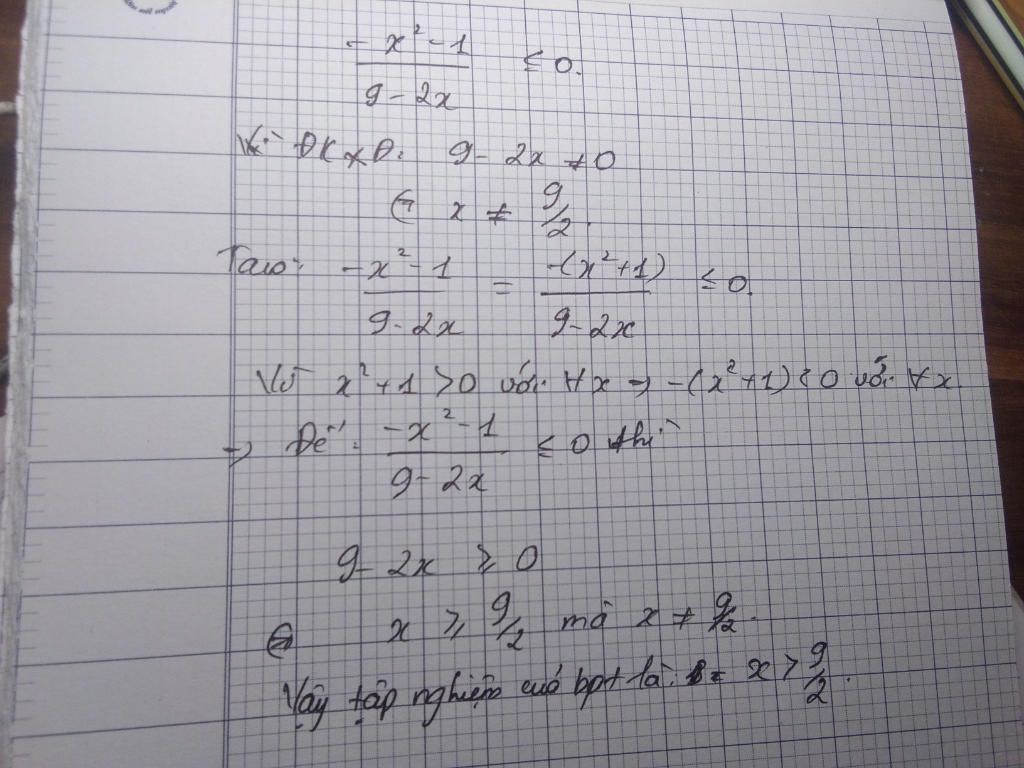 -x² - 1 / 9 - 2x ≤ 0.
ĐKXĐ: 9 - 2x ≠ 0
x ≠ 9/2.
Ta có: -x² - 1 / 9 - 2x = -(x² + 1) / 9 - 2x ≤ 0.
Vì x² + 1 > 0 với ∀x ⇒ -(x² + 1) < 0 với ∀x
⇒ Để: -x² - 1 / 9 - 2x ≤ 0 thì
9 - 2x ≥ 0
⇔ x ≥ 9/2 mà x ≠ 9/2.
Vậy tập nghiệm của bpt là: x > 9/2.